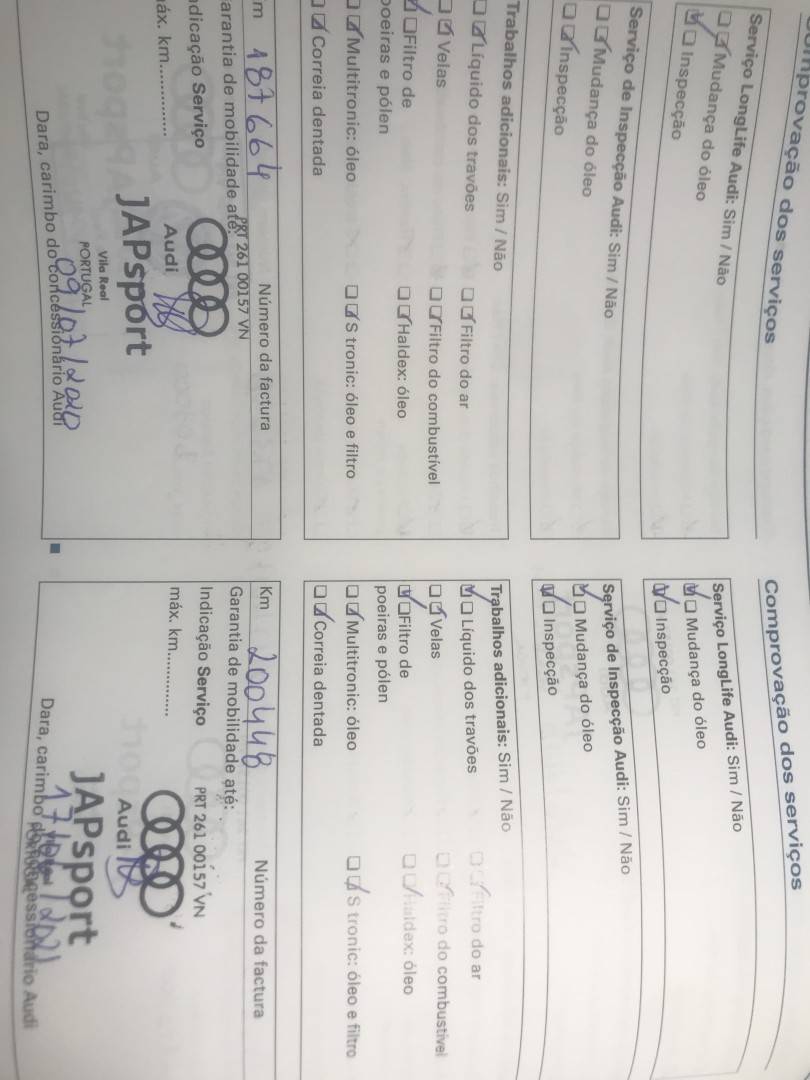 omprovação dos serviços
Serviço LongLife Audi: Sim / Não
Mudança do óleo
Inspecção
Serviço de Inspecção Audi: Sim / Não
Mudança do óleo
Inspecção
Trabalhos adicionais: Sim / Não
Líquido dos travões
Filtro do ar
Velas
Filtro do combustível
Filtro de
Haldex: óleo
poeiras e pólen
Multitronic: óleo
S tronic: óleo e filtro
Correia dentada
m 187664
Número da factura
arantia de mobilidade até:
PRT 261 00157 VN
dicação Serviço
Audi
áx. km..............
JAPsport
Vila Real
PORTUGAL
09/07/2020
Dara, carimbo do concessionário Audi
Comprovação dos serviços
Serviço LongLife Audi: Sim / Não
Mudança do óleo
Inspecção
Serviço de Inspecção Audi: Sim / Não
Mudança do óleo
Inspecção
Trabalhos adicionais: Sim / Não
Líquido dos travões
Filtro do ar
Velas
Filtro do combustível
Filtro de
Haldex: óleo
poeiras e pólen
Multitronic: óleo
S tronic: óleo e filtro
Correia dentada
Km 200448
Número da factura
Garantia de mobilidade até:
Indicação Serviço
PRT 261 00157 VN
máx. km..............
Audi
JAPsport
Dara, carimbo do concessionário Audi